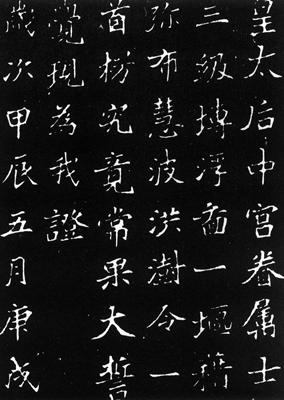 皇太后中宮眷属士
三級塼浮啚一堰籍
弥布慧波洪澍令一
首楞究竟常果大誓
覺現為我證
歲次甲辰五月庚戌